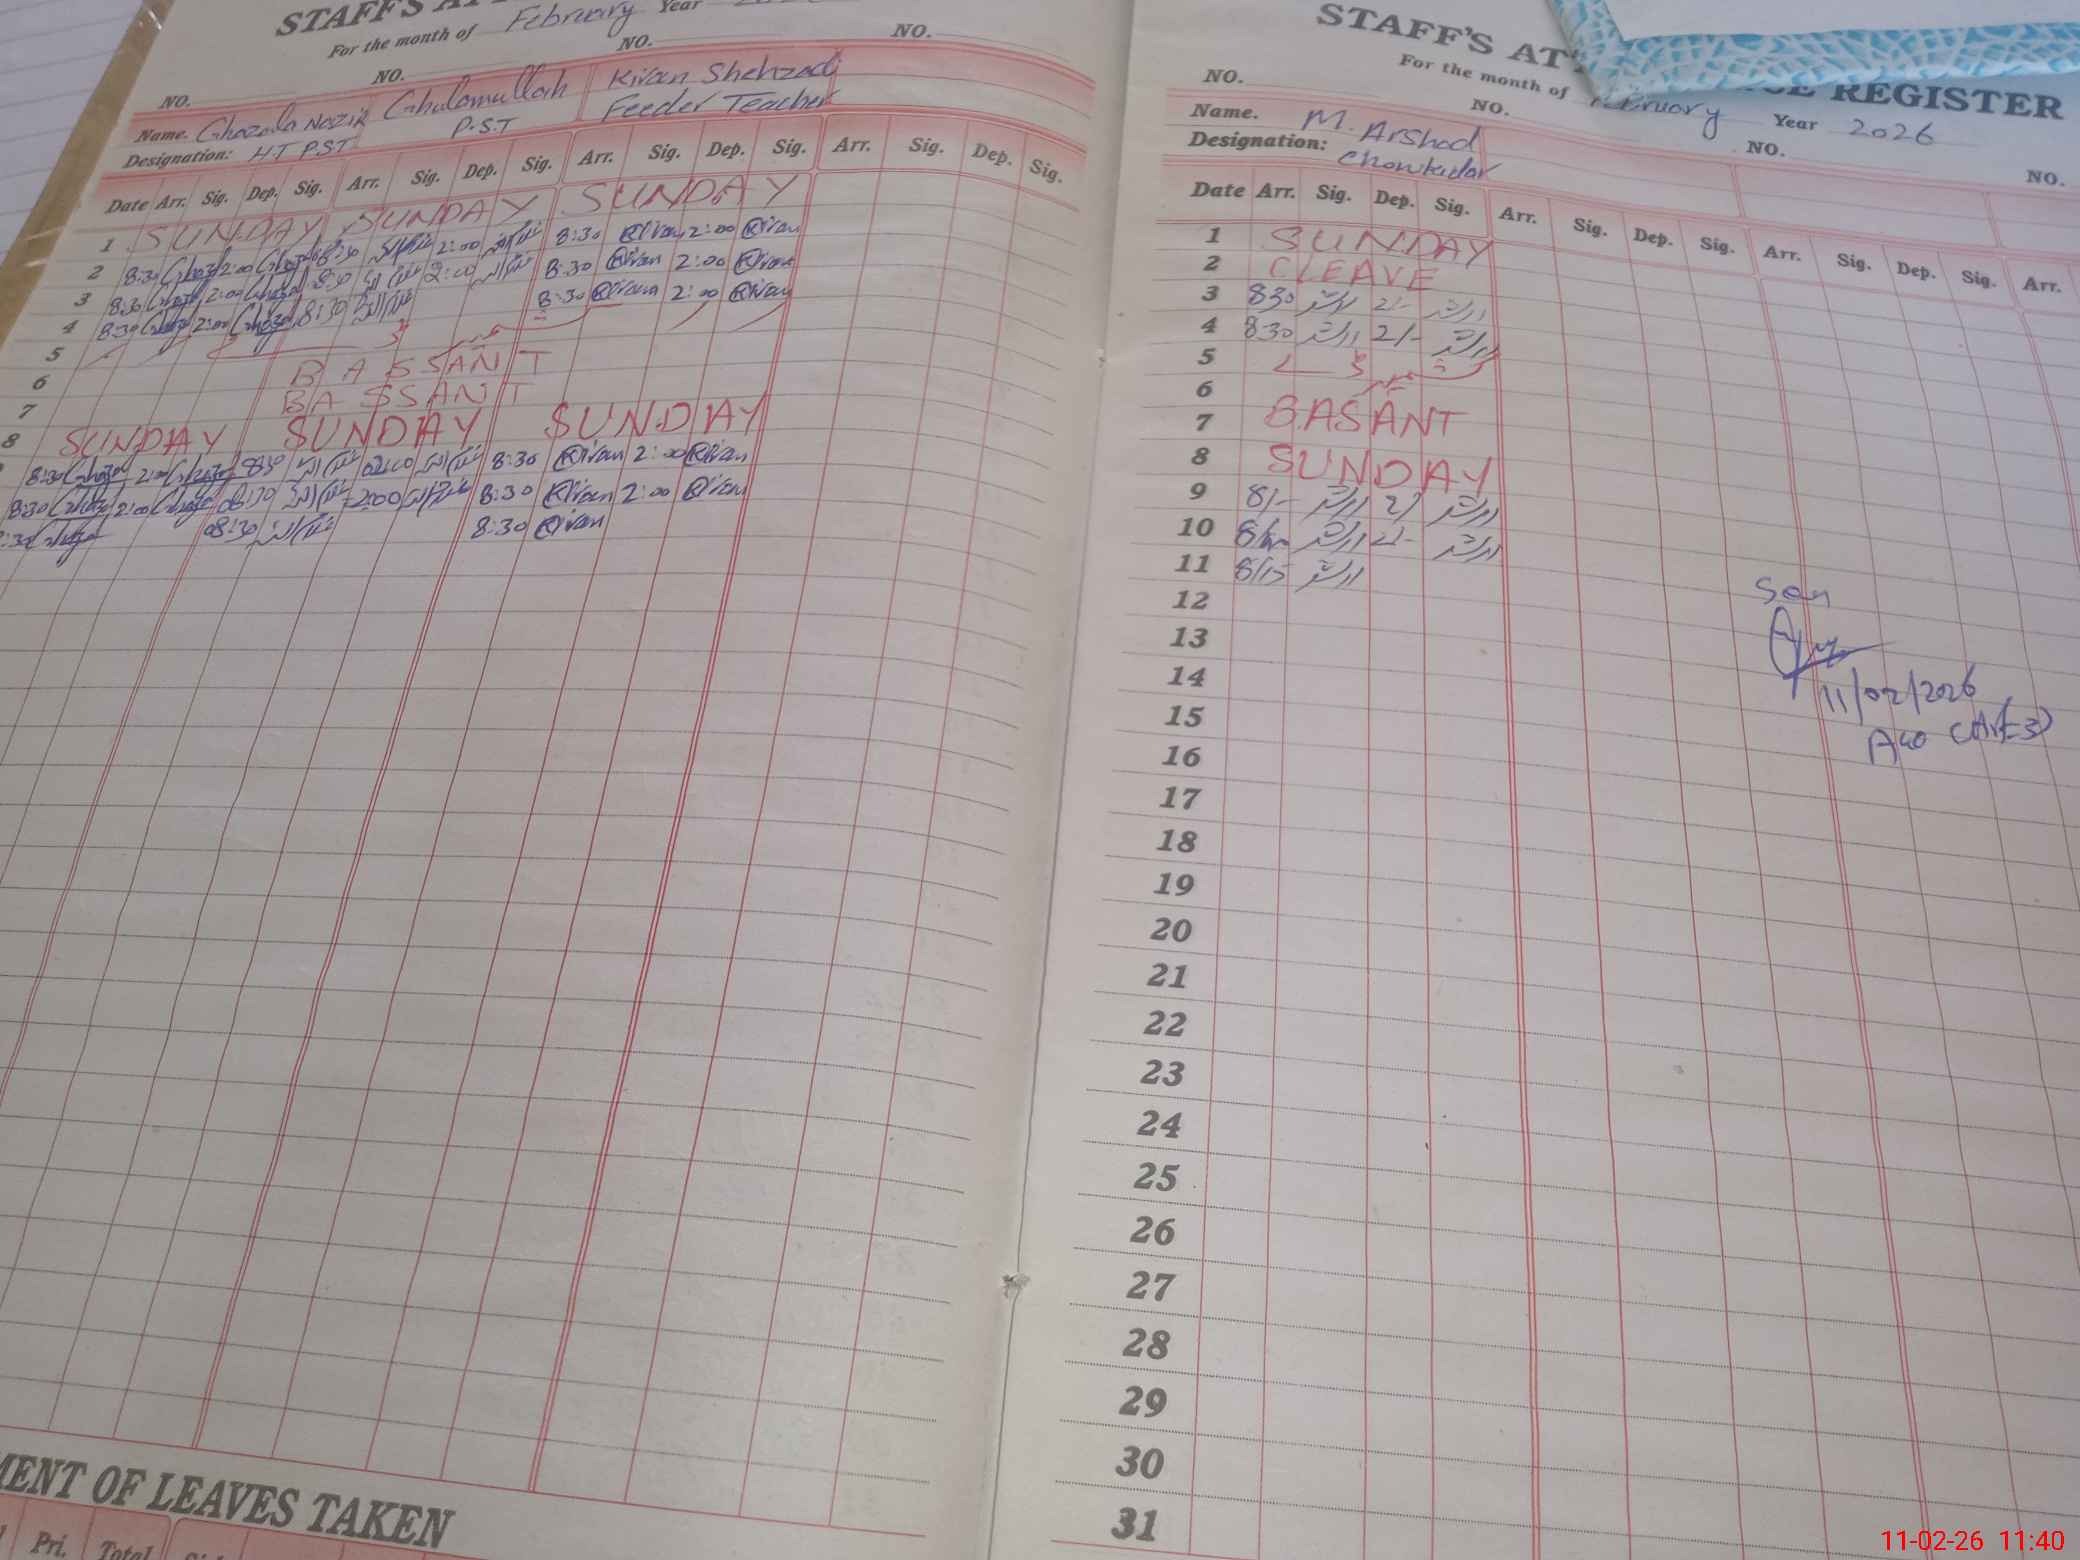 STAFF'S AT
For the month of February Year
NO. NO. NO. NO.
Name. Ghazala Nazir Ghulamullah Kiran Shehzadi
Designation: H.T P.S.T P.S.T Feeder Teacher
Date Arr. Sig. Dep. Sig. Arr. Sig. Dep. Sig. Arr. Sig. Dep. Sig. Arr. Sig. Dep. Sig.
1 SUNDAY SUNDAY SUNDAY
2 8:30 2:00 8:30 2:00 8:30 Kiran 2:00 Kiran
3 8:30 2:00 8:30 2:00 8:30 Kiran 2:00 Kiran
4 8:30 2:00 8:30 8:30 Kiran 2:00 Kiran
5
6 BASSANT
7 BASSANT
8 SUNDAY SUNDAY SUNDAY
8:30 2:00 8:30 02:00 8:30 Kiran 2:00 Kiran
8:30 2:00 08:30 2:00 8:30 Kiran 2:00 Kiran
:30 08:30 8:30 Kiran
MENT OF LEAVES TAKEN
Pri. Total
STAFF'S AT CE REGISTER
For the month of February Year 2026
NO. NO. NO. NO.
Name. M. Arshad
Designation: Chowkidar
Date Arr. Sig. Dep. Sig. Arr. Sig. Dep. Sig. Arr. Sig. Dep. Sig. Arr.
1 SUNDAY
2 C LEAVE
3 830 ارشد 2/- ارشد
4 8:30 ارشد 2/- ارشد
5
6
7 BASANT
8 SUNDAY
9 8/- ارشد 2/ ارشد
10 ارشد 2/- ارشد
11 8/15 ارشد
12
13
14
15
16
17
18
19
20
21
22
23
24
25
26
27
28
29
30
31
Seen
11/02/2026
11-02-26 11:40